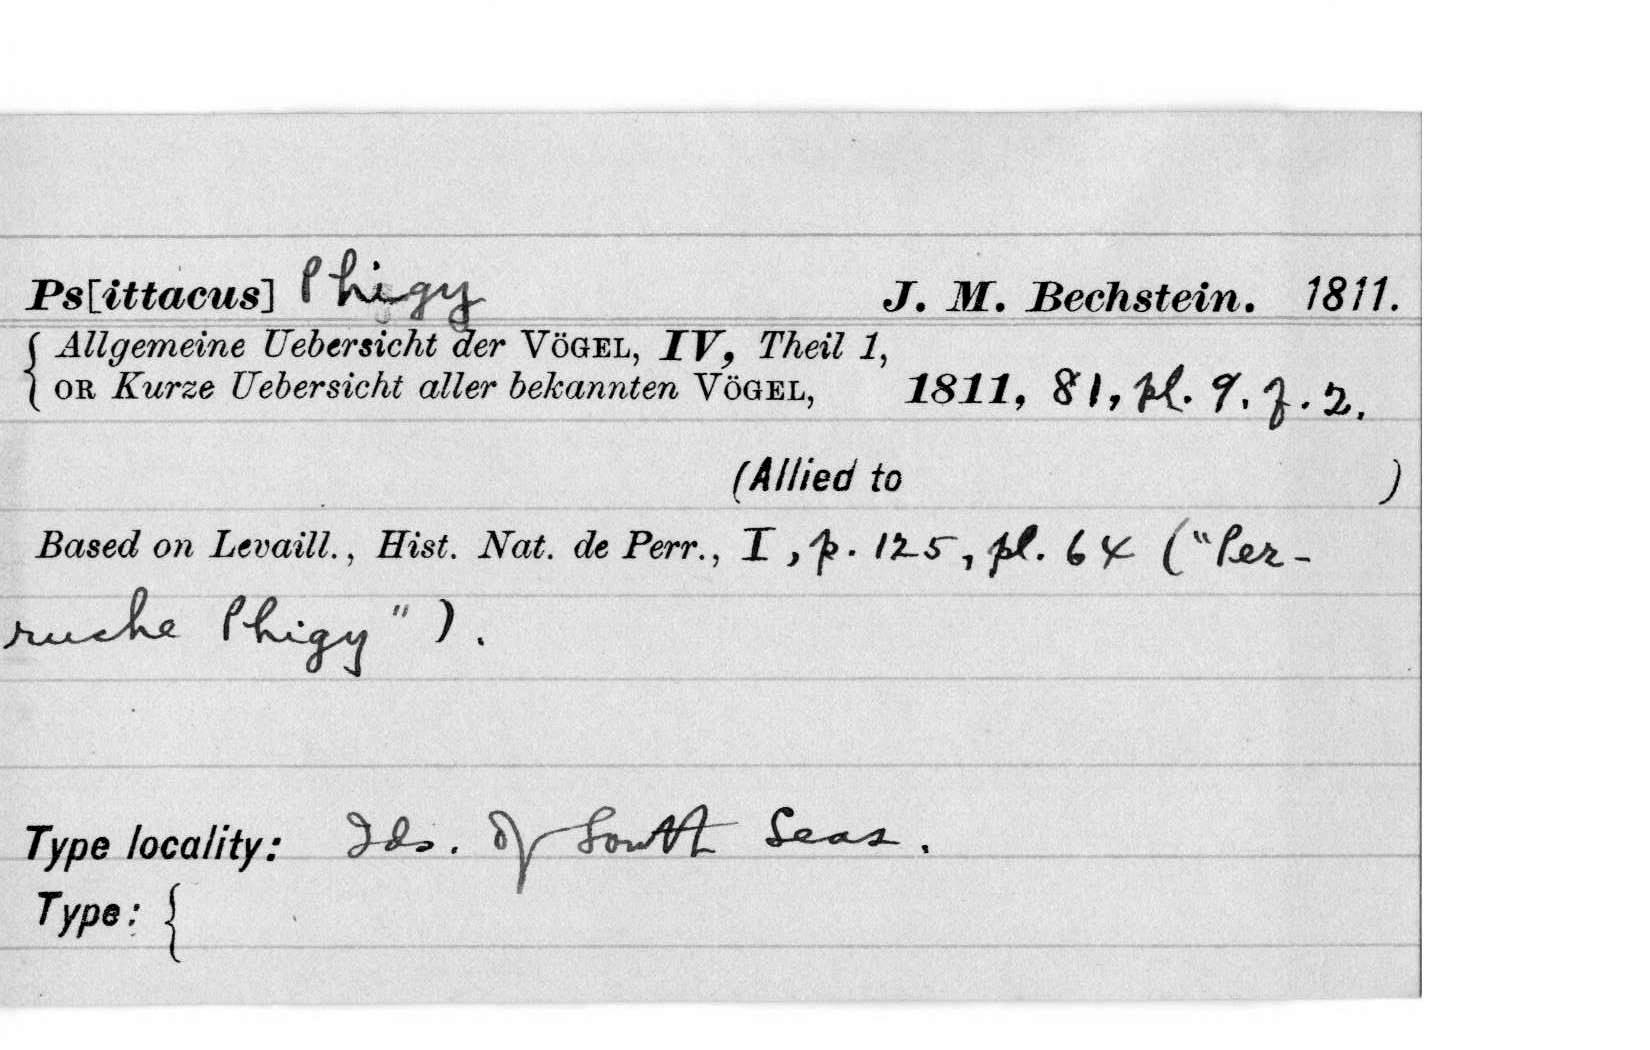 Ps[ittacus] Phigy J. M. Bechstein. 1811.
{ Allgemeine Uebersicht der VÖGEL, IV, Theil 1,
OR Kurze Uebersicht aller bekannten VÖGEL, 1811, 81, pl. 9. f. 2.
(Allied to )
Based on Levaill., Hist. Nat. de Perr., I, p. 125, pl. 64 ("Per-
ruche Phigy").
Type locality: Ids. of South Seas.
Type: {